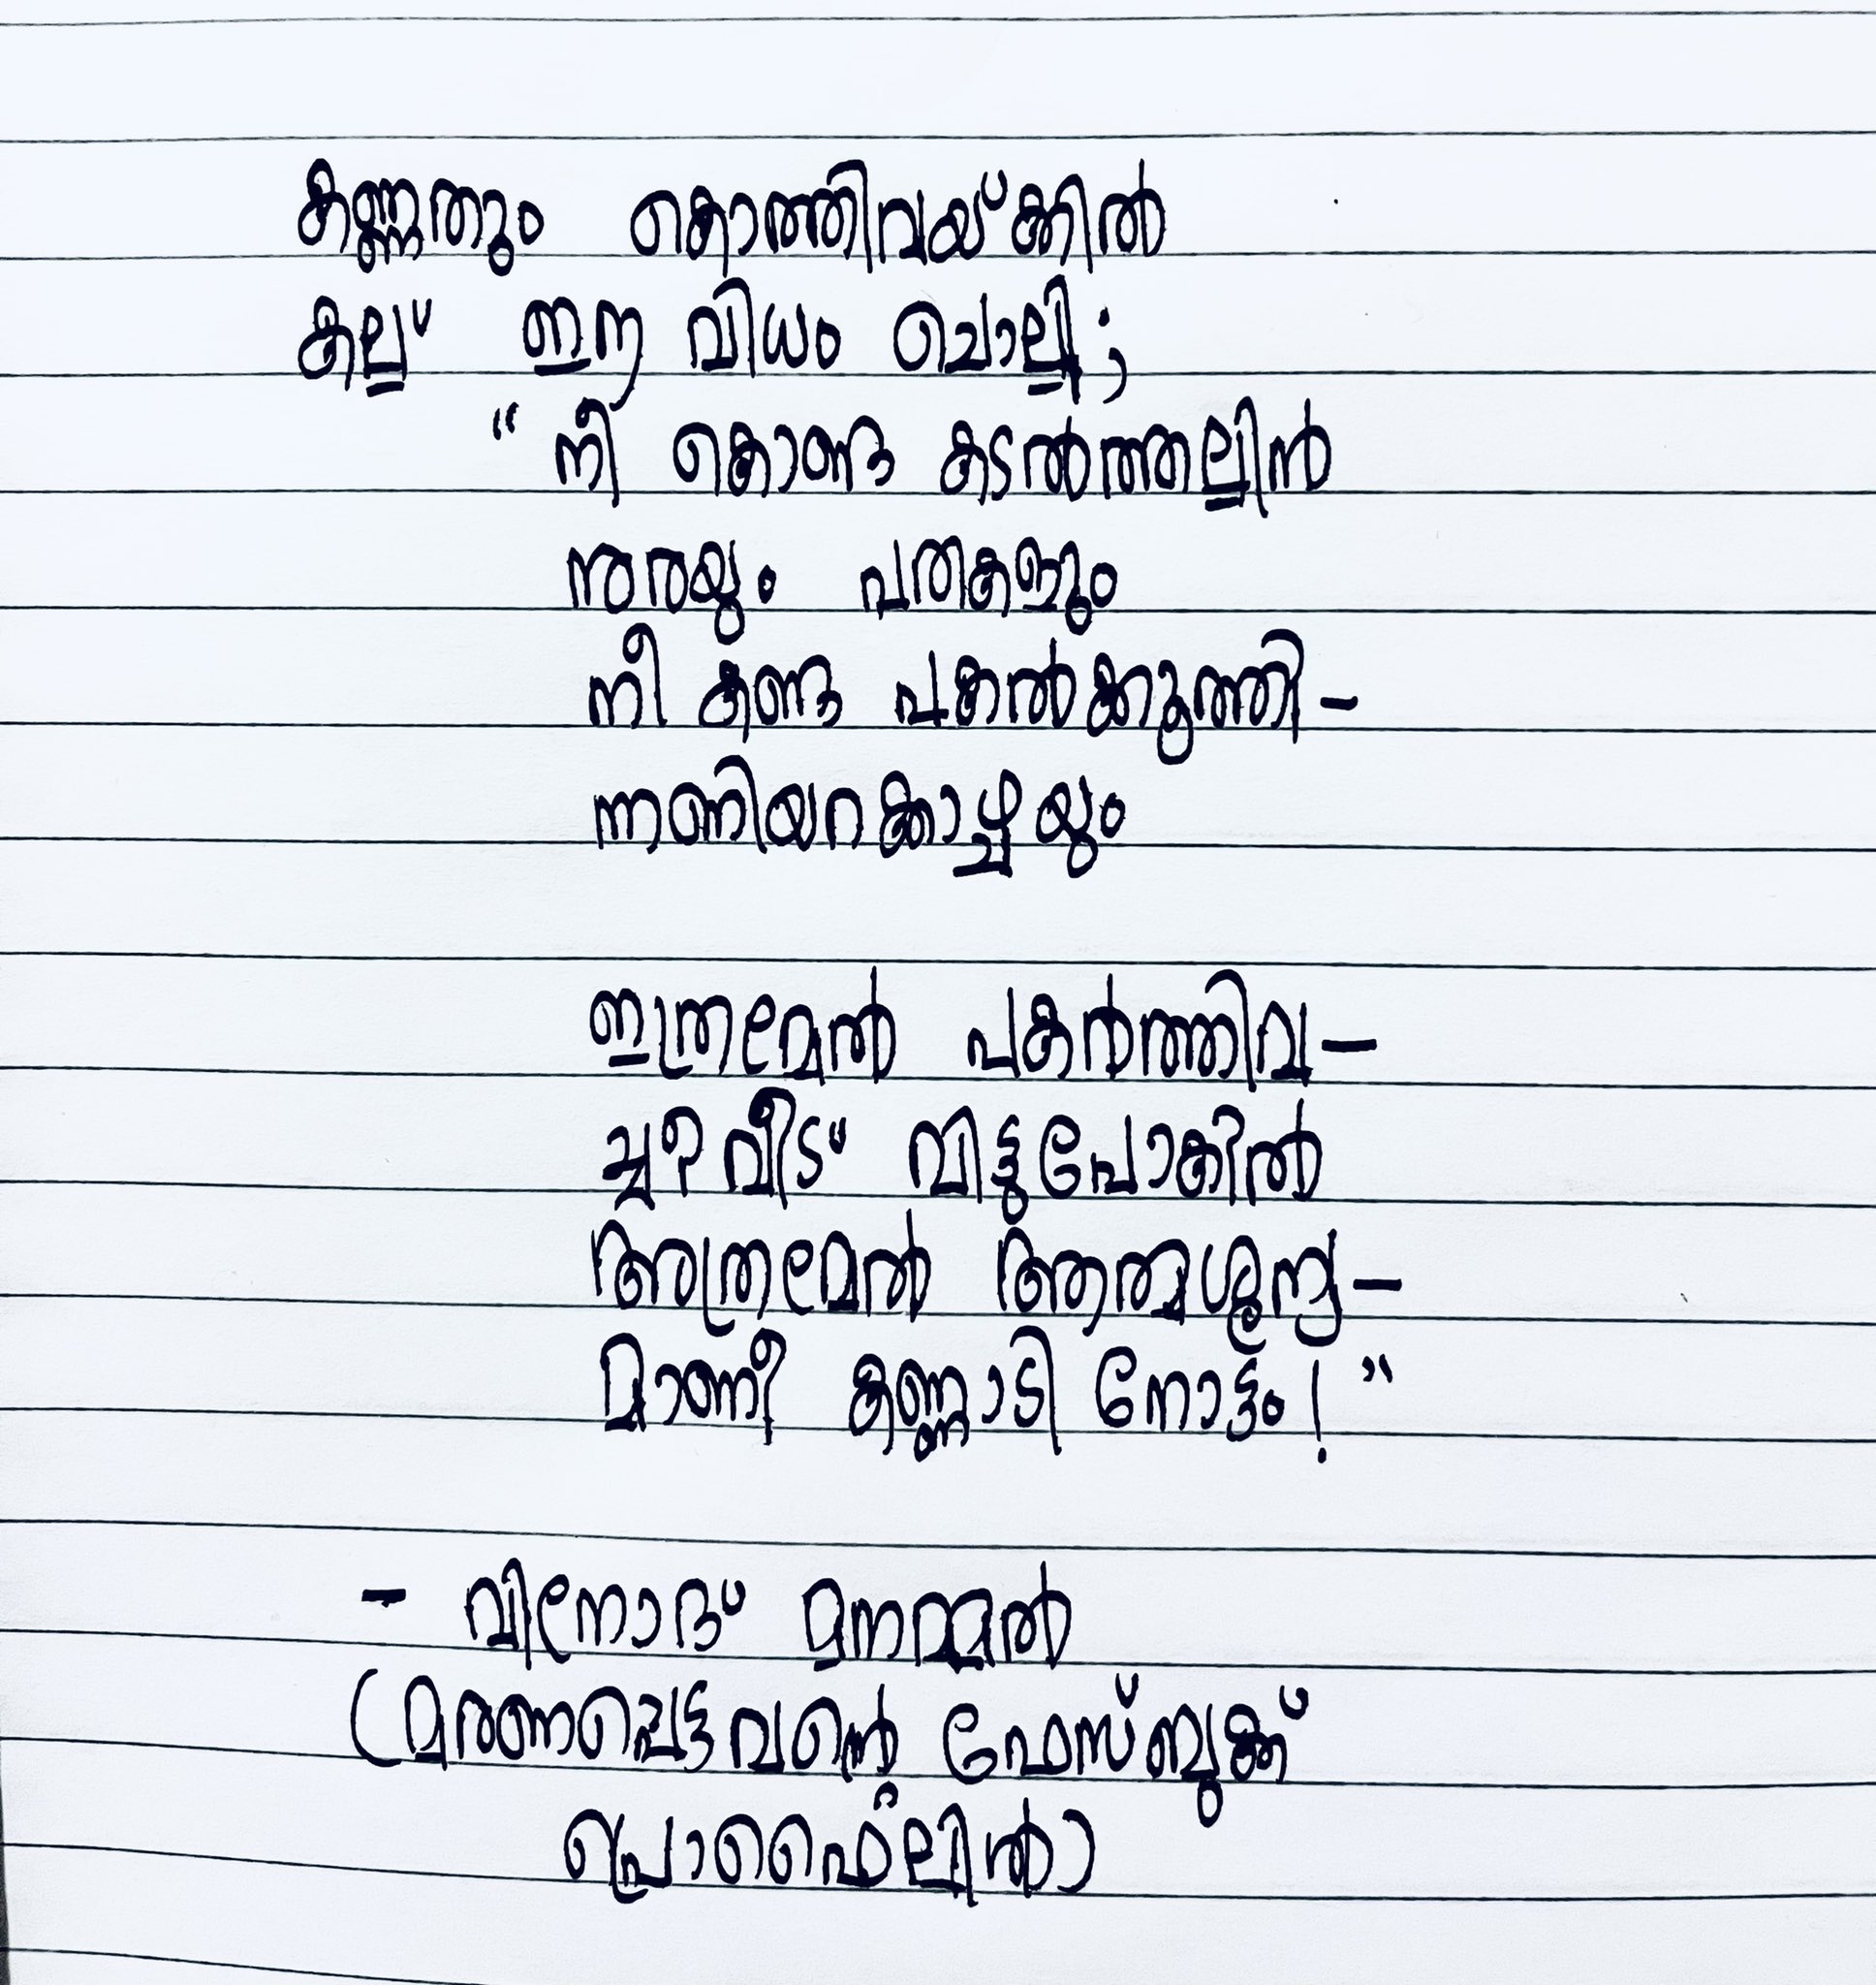 കണ്ണതും കൊത്തിവയ്ക്കിൽ
കല്ല് ഈ വിധം ചൊല്ലി;
“നീ കൊണ്ട കടൽത്തല്ലിൻ
നുരയും പതകളും
നീ കണ്ട പകൽക്കുത്തി-
ന്നണിയറക്കാഴ്ചയും
ഇത്രമേൽ പകർത്തിവ-
ച്ചീ വീട് വിട്ടുപോകിൽ
അത്രമേൽ ആത്മശൂന്യ-
മാണീ കണ്ണാടി നോട്ടം!”
- വിനോദ് മനമ്മൽ
(മരണപ്പെട്ടവന്റെ ഫേസ്ബുക്ക്
പ്രൊഫൈലിൽ)